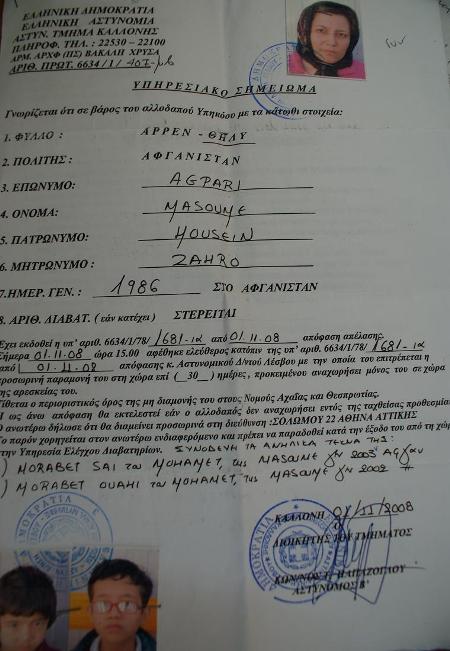 ΕΛΛΗΝΙΚΗ ΔΗΜΟΚΡΑΤΙΑ
ΕΛΛΗΝΙΚΗ ΑΣΤΥΝΟΜΙΑ
ΑΣΤΥΝ. ΤΜΗΜΑ ΚΑΛΛΟΝΗΣ
ΠΛΗΡΟΦ. ΤΗΛ. : 22530 – 22100
ΑΡΜ. ΑΡΧΦ (ΠΣ) ΒΑΚΑΛΗ ΧΡΥΣΑ
ΑΡΙΘ. ΠΡΩΤ. 6634/1/
ΥΠΗΡΕΣΙΑΚΟ ΣΗΜΕΙΩΜΑ
Γνωρίζεται ότι σε βάρος του αλλοδαπού Υπηκόου με τα κάτωθι στοιχεία:
1. ΦΥΛΛΟ : ΑΡΡΕΝ - ΘΗΛΥ
2. ΠΟΛΙΤΗΣ : ΑΦΓΑΝΙΣΤΑΝ
3. ΕΠΩΝΥΜΟ: AGPARI
4. ΟΝΟΜΑ: MASOUME
5. ΠΑΤΡΩΝΥΜΟ: HOUSEIN
6. ΜΗΤΡΩΝΥΜΟ : ZAHRO
7.ΗΜΕΡ. ΓΕΝ. : 1986 ΣΤΟ ΑΦΓΑΝΙΣΤΑΝ
8. ΑΡΙΘ. ΔΙΑΒΑΤ. ( εάν κατέχει ) ΣΤΕΡΕΙΤΑΙ
Έχει εκδοθεί η υπ' αριθ. 6634/1/78/ 1681-ια από 01.11.08 απόφαση απέλασης.
Σήμερα 01.11.08 ώρα 15.00 αφέθηκε ελεύθερος κατόπιν της υπ' αριθ. 6634/1/78/ 1681-ια
από 01.11.08 απόφασης κ. Αστυνομικού Δ/ντού Λέσβου με την οποία του επιτρέπεται η
προσωρινή παραμονή του στη χώρα επί ( 30 ) ημέρες , προκειμένου αναχωρήσει μόνος του σε χώρα
της αρεσκείας του.
Τίθεται ο περιοριστικός όρος της μη διαμονής του στους Νομούς Αχαΐας και Θεσπρωτίας.
Η ως άνω απόφαση θα εκτελεστεί εάν ο αλλοδαπός δεν αναχωρήσει εντός της ταχθείσας προθεσμίας
Ο ανωτέρω δήλωσε ότι θα διαμείνει προσωρινά στη διεύθυνση :ΣΟΛΩΜΟΥ 22 ΑΘΗΝΑ ΑΤΤΙΚΗΣ
Το παρόν χορηγείται στον ανωτέρω ενδιαφερόμενο και πρέπει να παραδοθεί κατά την έξοδο του από τη χώρα
στην Υπηρεσία Ελέγχου Διαβατηρίων. ΣΥΝΟΔΕΥΗ ΤΑ ΑΝΗΛΙΚΑ ΤΕΚΝΑ ΤΗΣ:
) MORABET SAI του MOHAMET, της MASOUME γεν 2003
) MORABET OUAHI του MOHAMET, της MASOUME γεν 2002
ΚΑΛΛΟΝΗ 01/11/2008
Ο
ΔΙΟΙΚΗΤΗΣ ΤΟΥ ΤΜΗΜΑΤΟΣ
ΑΣΤΥΝΟΜΟΣ Β'